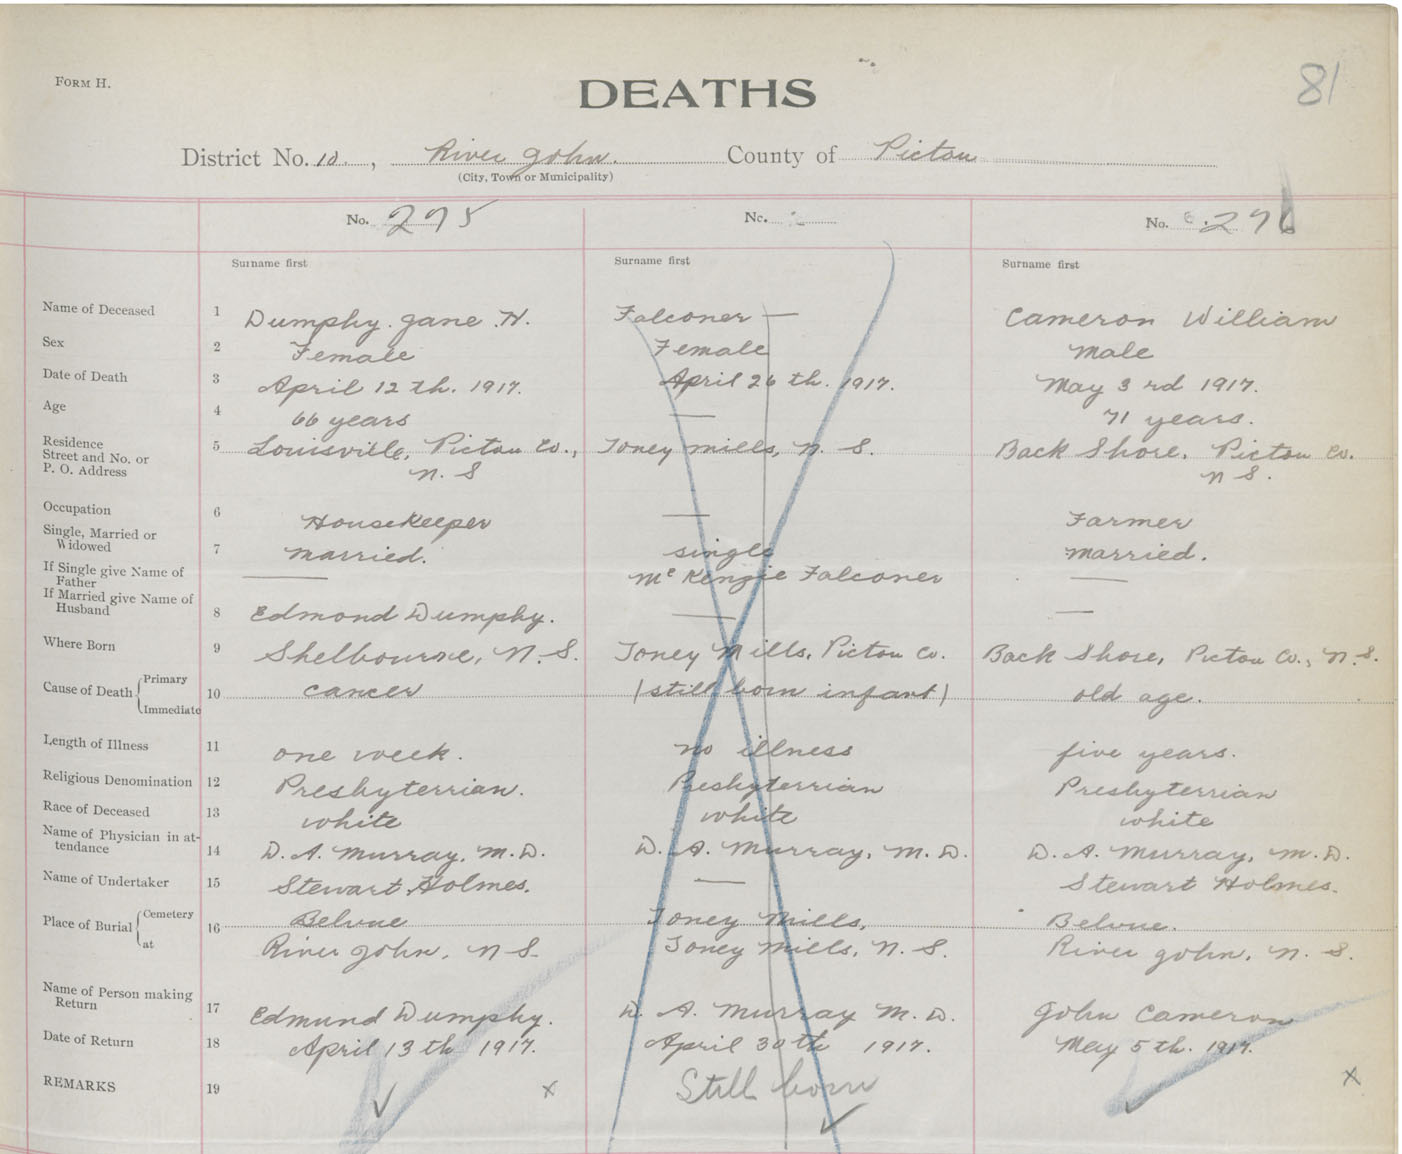 FORM H.
DEATHS
81
District No. 10, River John. County of Pictou
(City, Town or Municipality)
No. 295 No. No. 296
Surname first Surname first Surname first
Name of Deceased 1 Dumphy. Jane. H. Falconer — Cameron William
Sex 2 Female Female male
Date of Death 3 April 12th. 1917. April 26th. 1917. May 3rd 1917.
Age 4 66 years — 71 years.
Residence 5 Louisville, Pictou Co., Toney Mills, N. S. Back Shore, Pictou Co.
Street and No. or N. S N S.
P. O. Address
Occupation 6 Housekeeper — Farmer
Single, Married or
Widowed 7 married. single married.
If Single give Name of
Father — McKenzie Falconer —
If Married give Name of
Husband 8 Edmond Dumphy. — —
Where Born 9 Shelbourne, N. S. Toney Mills, Pictou Co. Back Shore, Pictou Co., N. S.
Cause of Death { Primary
Immediate 10 cancer (still born infant) old age.
Length of Illness 11 one week. no illness five years.
Religious Denomination 12 Presbyterrian. Presbyterrian Presbyterrian
Race of Deceased 13 white white white
Name of Physician in at-
tendance 14 D. A. Murray, M. D. D. A. Murray, M. D. D. A. Murray, M. D.
Name of Undertaker 15 Stewart Holmes. — Stewart Holmes.
Place of Burial { Cemetery 16 Belvue Toney Mills, Belvue.
at River John, N S. Toney Mills, N. S. River John, N. S.
Name of Person making
Return 17 Edmund Dumphy. D. A. Murray M. D. John Cameron
Date of Return 18 April 13th 1917. April 30th 1917. May 5th. 1917.
REMARKS 19 ✓ x Still born ✓ ✓ x